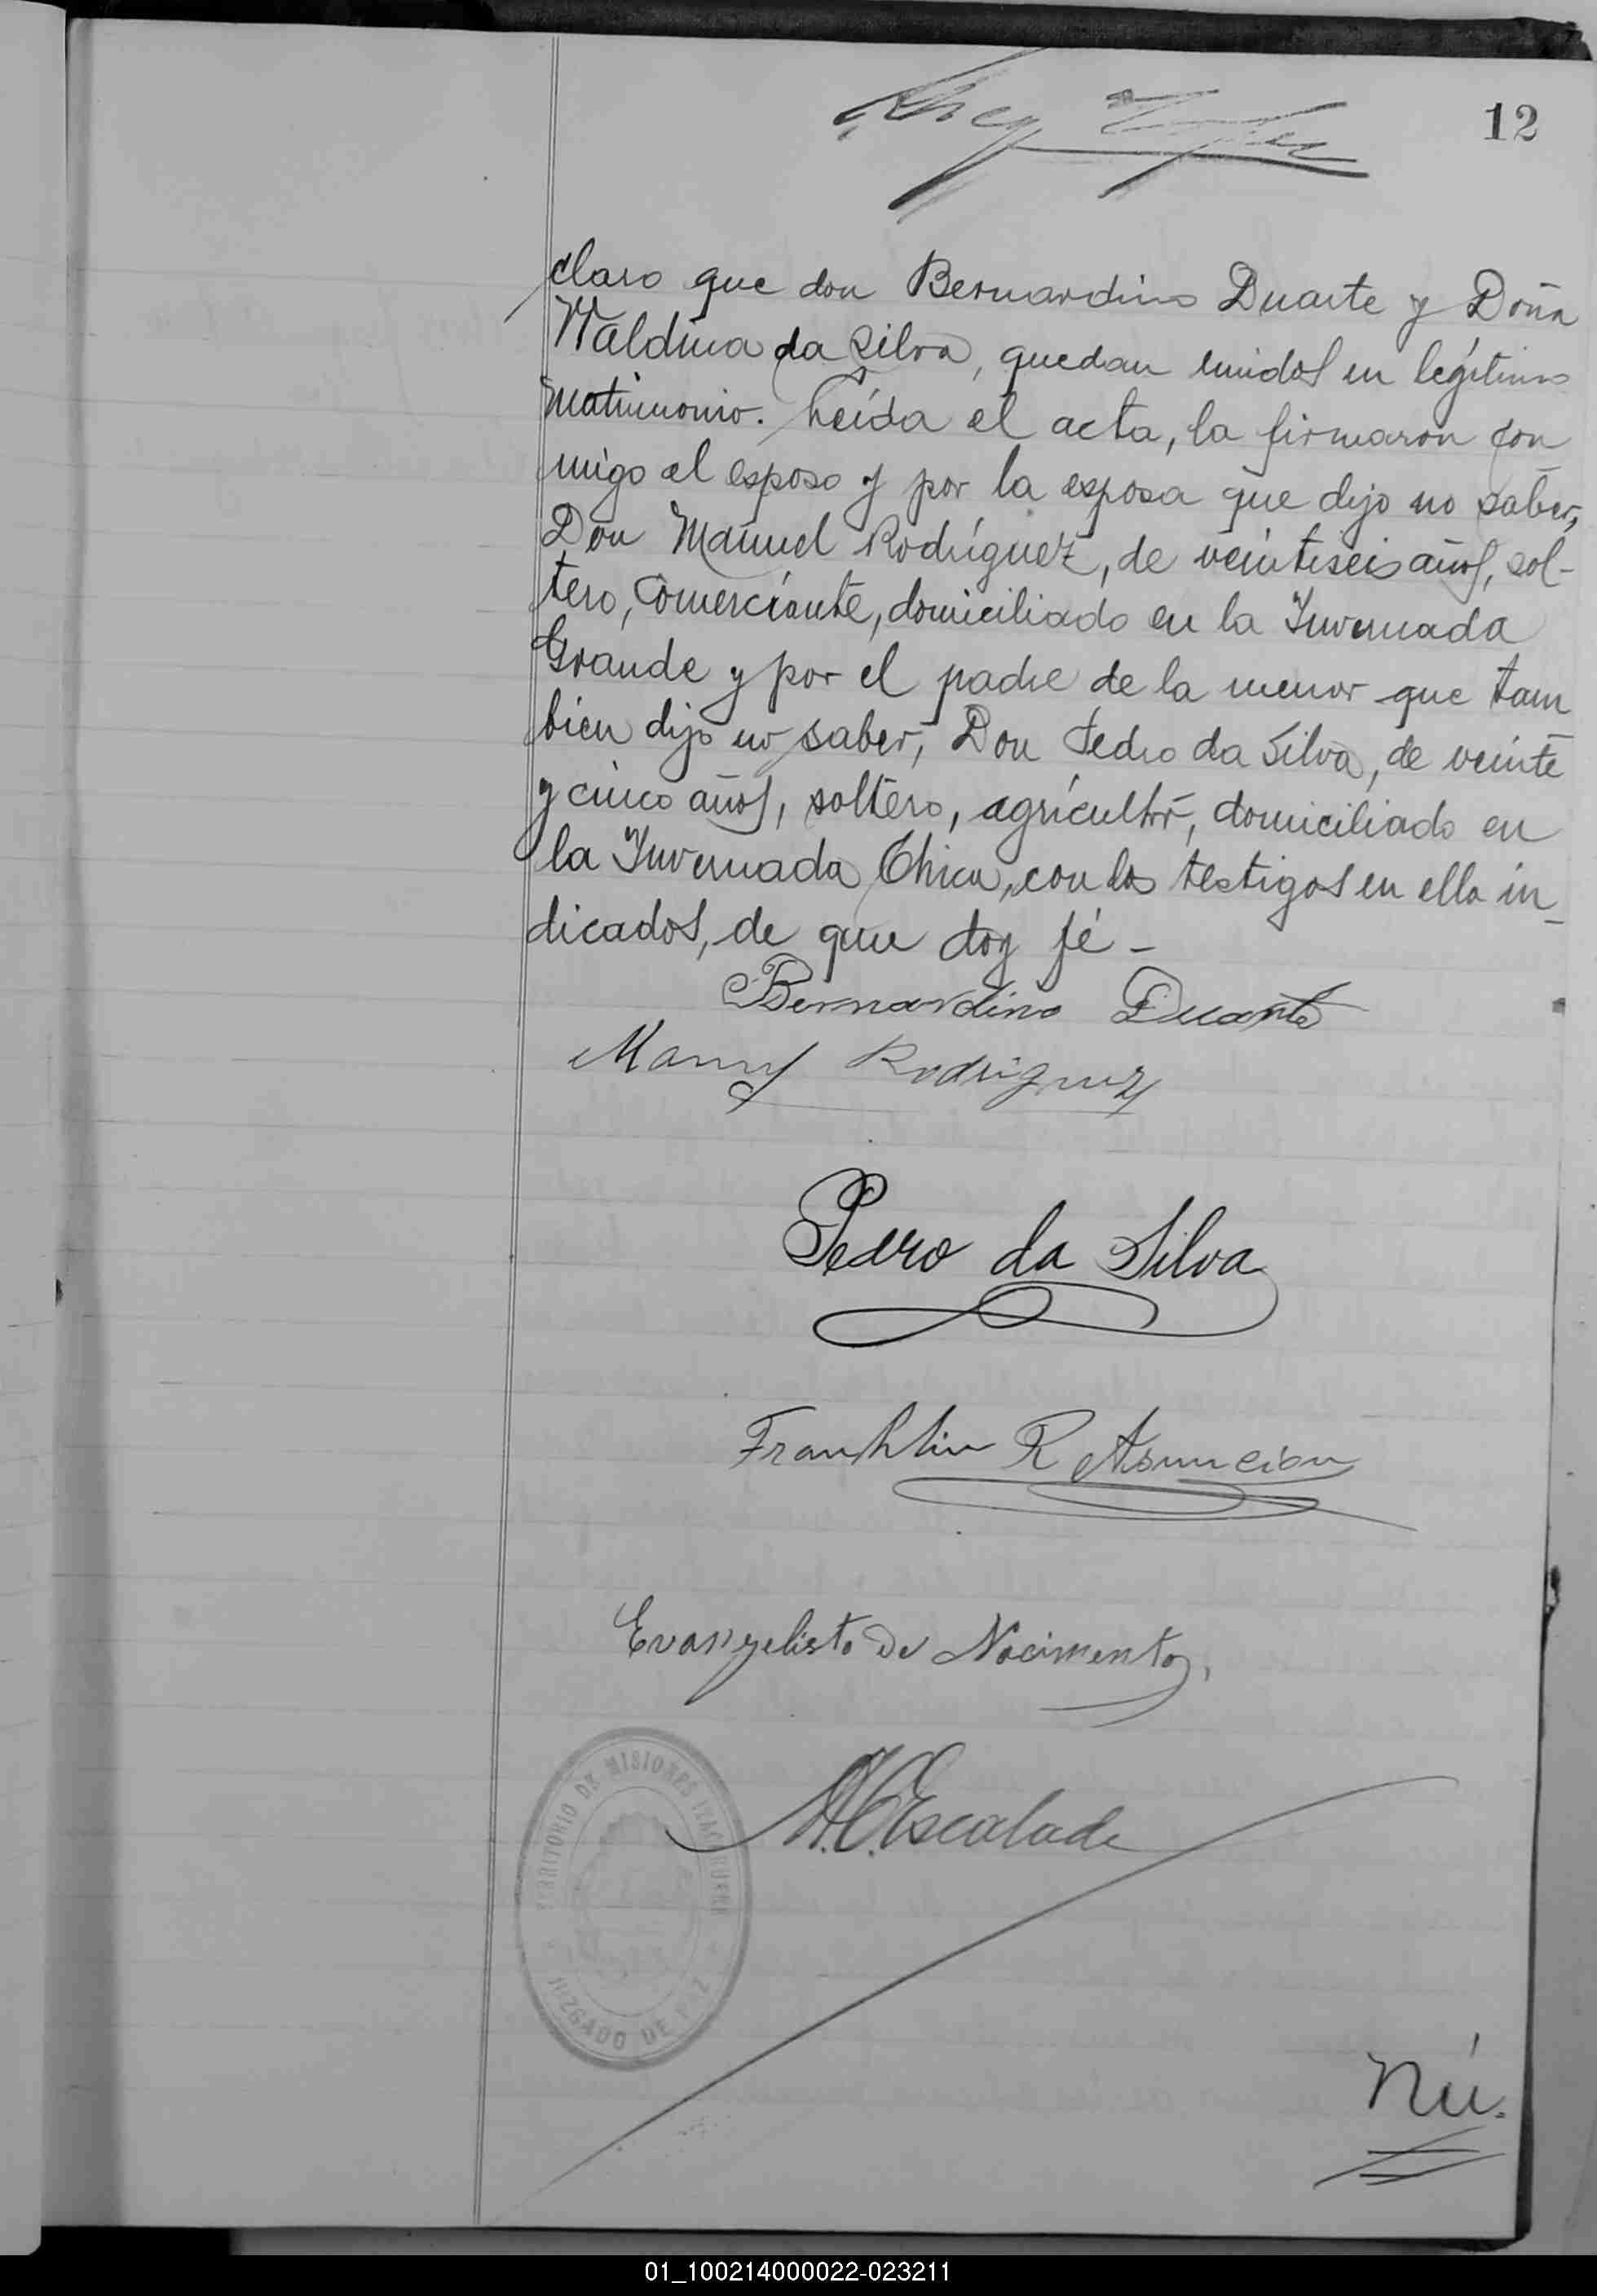 12
claro que don Bernardino Duarte y Doña
Waldina da Silva, quedan unidos en legítimo
matrimonio. Leída el acta, la firmaron con
migo el esposo y por la esposa que dijo no saber,
Don Manuel Rodríguez, de veintiseis años, sol-
tero, comerciante, domiciliado en la Invernada
Grande y por el padre de la menor que tam
bien dijo no saber, Don Pedro da Silva, de veinte
y cinco años, soltero, agricultor, domiciliado en
la Invernada Chica, con los testigos en ella in_
dicados, de que doy fé -
Bernardino Duarte
Manuel Rodriguez
Pedro da Silva
Franklin R Asuncion
Evangelisto de Nacimento,
A. C. Escalada
TERRITORIO DE MISIONES
JUZGADO DE PAZ
Nú.
01_100214000022-023211